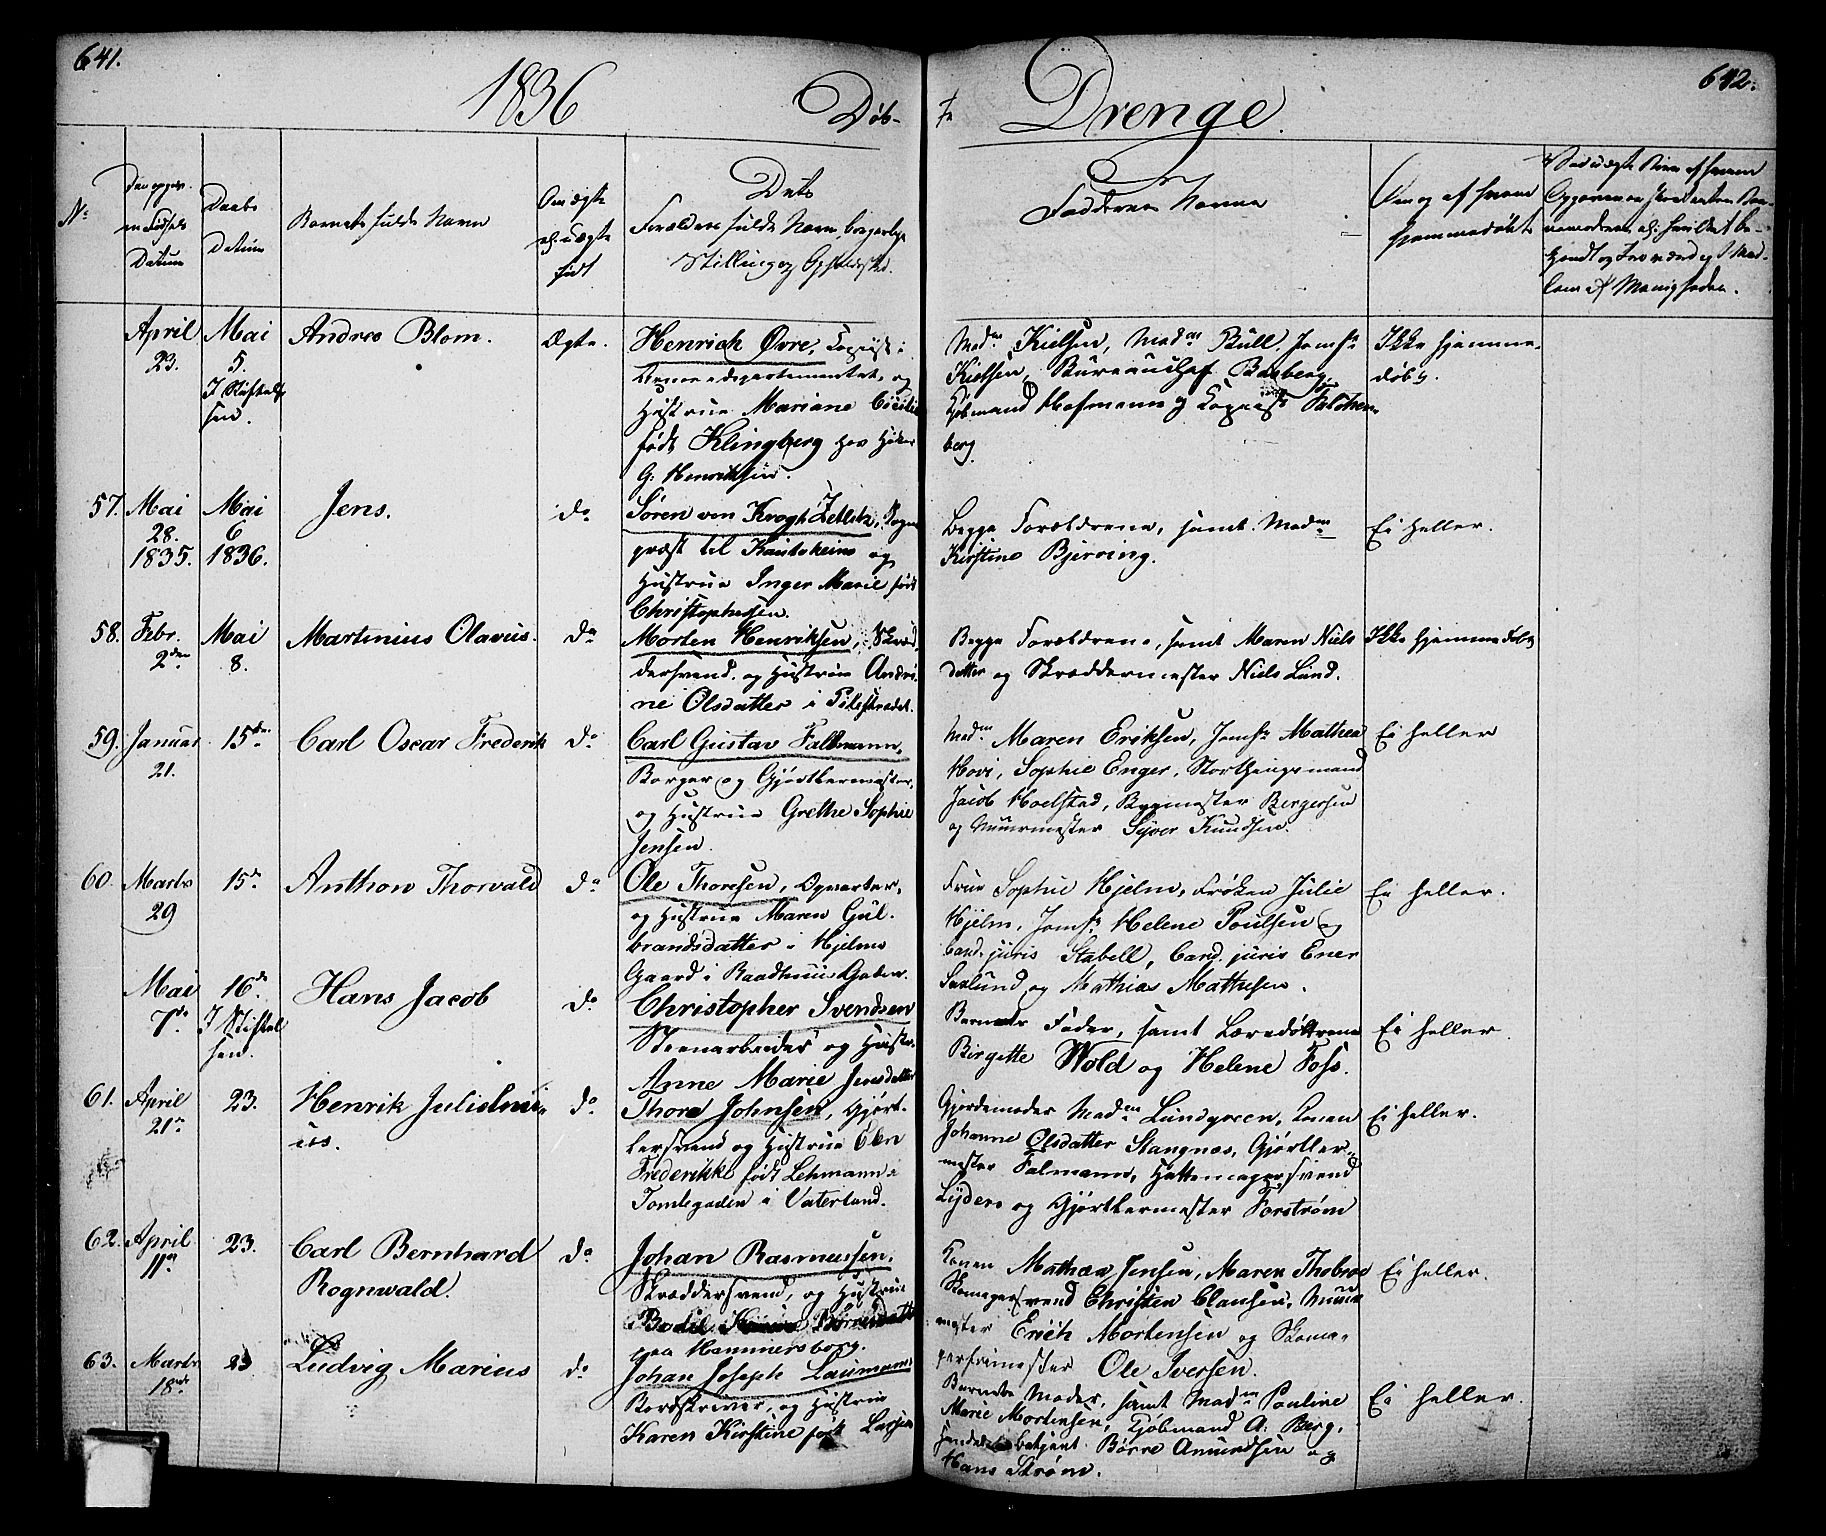 641.
1836
Døb-
te
Drenge.
642.
No
Den opgiv-
ne Fødsels
Datum
Daabs
Datum
Barnets fulde Navn
Om ægte
el. uægte
født
Dets
Forældres fulde Navn, borgerlige
Stilling og Opholdssted.
Faddernes Navne
Om og af hvem
hjemmedøbt
April
23.
Mai
5.
I Stiftel-
sen.
Andreo Blom.
Ægte.
Henrich Øvre, Copiist i
og
Hustrue Mariane Cicilie
født Klingberg hos
G. Henriksen.
Madm Kielsen, Madm Bull, Jomfr
Kielsen, Bureauchef Borberg,
Kjøbmand Hofmann og Copiist Falchen-
berg.
Ikke hjemme-
døbt.
57.
Mai
28.
1835.
Mai
6
1836.
Jens.
do
Søren von Krogh Zetlitz, Sogne
præst til Kautokeino og
Hustrue Inger Marie født
Christophersen.
Begge Forældrene, samt Madm
Kirstine Bjerring.
Ei heller.
58.
Febr.
2den
Mai
8.
Martinius Olavus.
do
Morten Henriksen, Skræd
dersvend, og Hustrue Andri-
ne Olsdatter i Pilestrædet.
Begge Forældrene, samt Maren Niels
datter og Skræddermester Niels Lund.
Ikke hjemmedøbt
59.
Januar
21.
15de
Carl Oscar Frederik
do
Carl Gustav Falkmann,
Borger og Gjørtlermester,
og Hustrue Grethe Sophie
Jensen.
Madm Maren Eriksen, Jomfr Mathea
Hovi, Sophie Enger, Storthingsmand
Jacob Hoelstad, Bygmester Bergersen
og Muurmester Syver Knudsen.
Ei heller
60.
Marts
29
15de
Anthon Thorvald
do
Ole Thoresen, Opvarter,
og Hustrue Maren Gul-
brandsdatter i Hjelms
Gaard i Raadhuus Gaden.
Frue Sophie Hjelm, Frøken Julie
Hjelm, Jomfr Helene Poulsen og
Cand. juris Stabell, Cand. juris Ener
Saxlund og Mathias Mathesen.
Ei heller.
Mai
7de
16de
I Stiftel
sen.
Hans Jacob
do
Christopher Svendsen
Steenarbeider og Hustr.
Anne Marie Jensdatter
Barnets Fader, samt Læredøttrene
Birgitte Wold og Helene Foss.
Ei heller
61.
April
21de
23.
Henrik Julielmi-
us.
do
Thore Johnsen, Gjørt-
lersvend og Hustrue Elen
Frederikke født Lehmann i
Tomtegaden i Vaterland.
Gjordemoder Madm Lundgreen, Konen
Johanne Olsdatter Stangnæs, Gjørtler-
mester Falmann, Hattemagersvend
Lyders og Gjørtlermester Forstrøm
Ei heller.
62.
April
11te
23.
Carl Bernhard
Rognwald.
do
Johan Rasmussen,
Skræddersvend, og Hustrue
Bodil
paa Hammersborg.
Konen Mathea Jensen, Maren Thobroe
Skomagersvend Christen Clausen, Muur
mester Erich Mortensen og Skoma-
germester Ole Iversen.
Ei heller.
63.
Marts
18de
23
Ludvig Marius
do
Johan Joseph Laumann,
Bordskriver, og Hustrue
Karen Kirstine født Larsen
Barnets Moder, samt Madm Pauline
Marie Mortensen, Kjøbmand A. Berg,
Handelsbetjent Børre Amundsen og
Hans Strøm.
Ei heller.